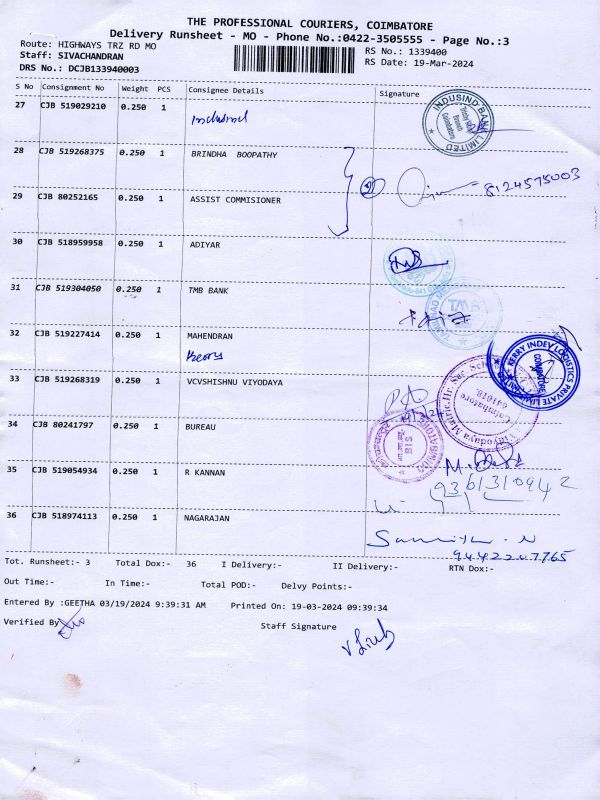 THE PROFESSIONAL COURIERS, COIMBATORE
Delivery Runsheet - MO - Phone No.:0422-3505555 - Page No.:3
Route: HIGHWAYS TRZ RD MO
RS No.: 1339400
Staff: SIVACHANDRAN
RS Date: 19-Mar-2024
DRS No.: DCJB133940003
S No Consignment No Weight PCS Consignee Details Signature
27 CJB 519029210 0.250 1
Indusind
INDUSIND BANK LIMITED
Coimbatore
28 CJB 519268375 0.250 1 BRINDHA BOOPATHY
8124575003
29 CJB 80252165 0.250 1 ASSIST COMMISIONER
30 CJB 518959958 0.250 1 ADIYAR
31 CJB 519304050 0.250 1 TMB BANK
TMB
32 CJB 519227414 0.250 1 MAHENDRAN
Kerry
KERRY INDEV LOGISTICS PRIVATE LIMITED
COIMBATORE
33 CJB 519268319 0.250 1 VCVSHISHNU VIYODAYA
Coimbatore
34 CJB 80241797 0.250 1 BUREAU
35 CJB 519054934 0.250 1 R KANNAN
9361310942
36 CJB 518974113 0.250 1 NAGARAJAN
9442207765
Tot. Runsheet:- 3 Total Dox:- 36 I Delivery:- II Delivery:- RTN Dox:-
Out Time:- In Time:- Total POD:- Delvy Points:-
Entered By :GEETHA 03/19/2024 9:39:31 AM Printed On: 19-03-2024 09:39:34
Verified By
Staff Signature